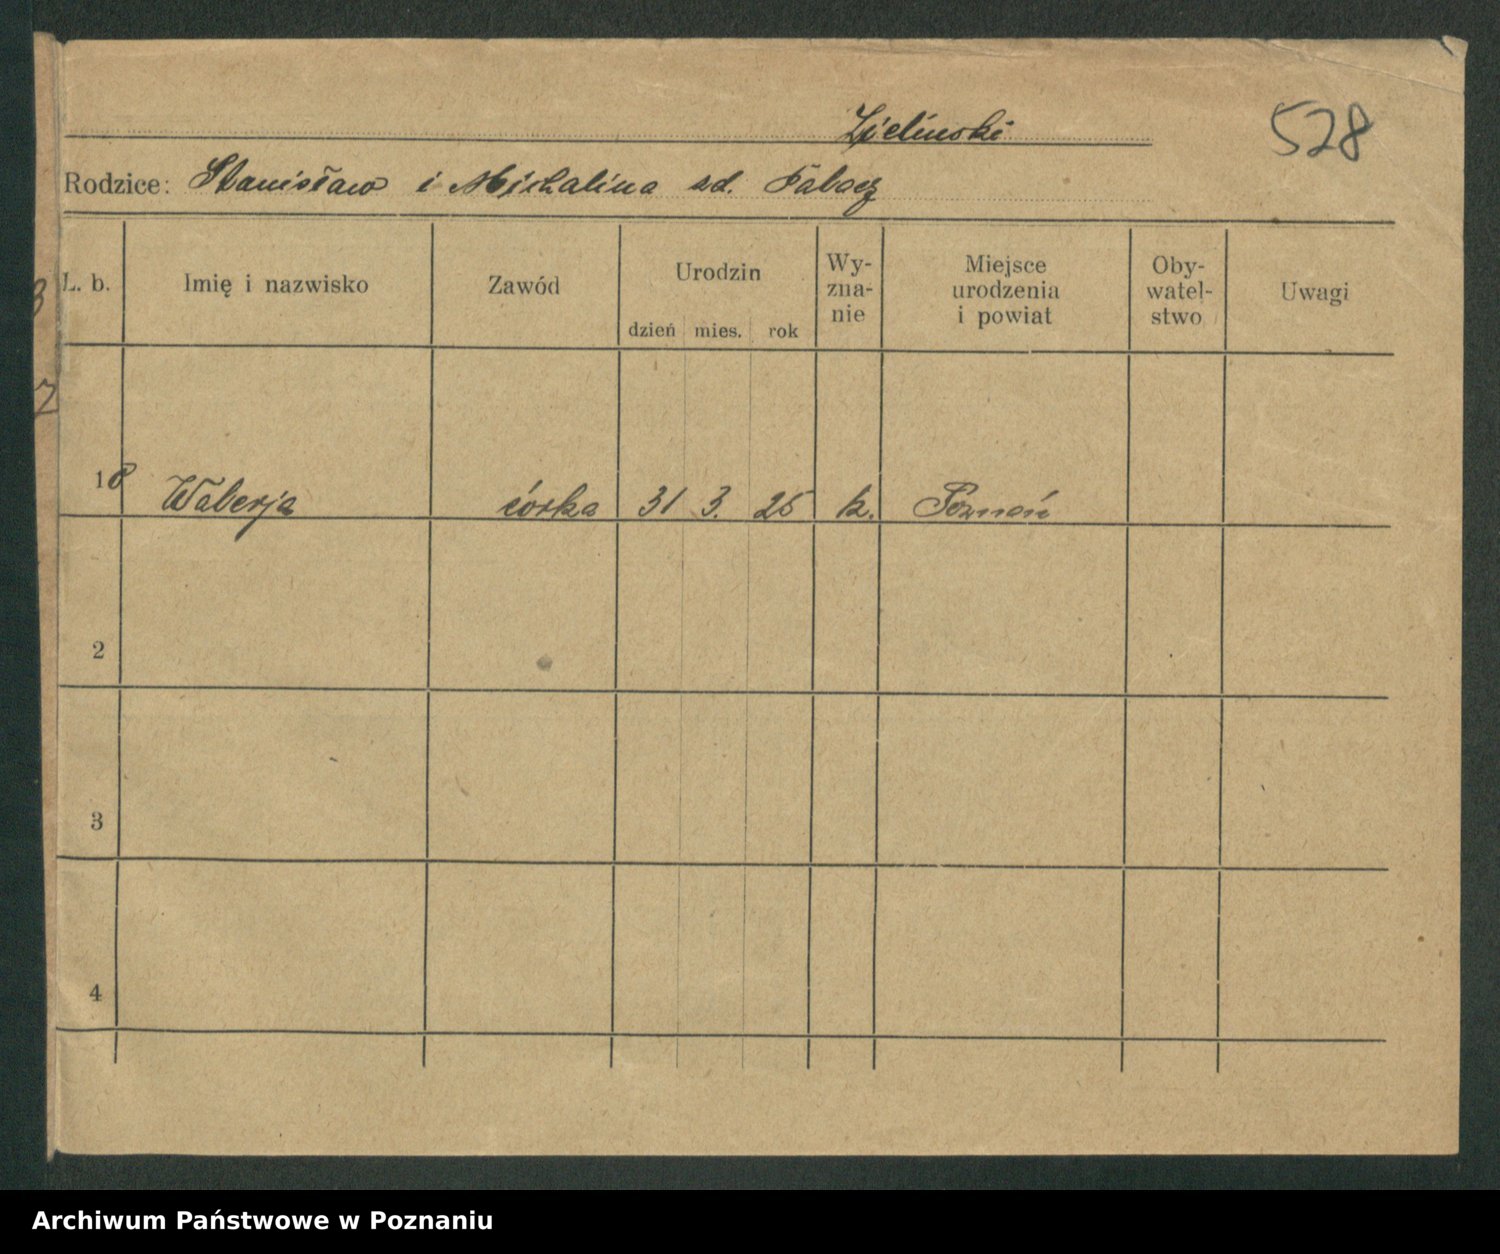 Zieliński
528
Rodzice: Stanisław i Michalina zd.
L. b.
Imię i nazwisko
Zawód
Urodzin
dzień mies. rok
Wy-
zna-
nie
Miejsce
urodzenia
i powiat
Oby-
watel-
stwo
Uwagi
1 Walerja córka 31 3. 25 k. Poznań
2
3
4
Archiwum Państwowe w Poznaniu